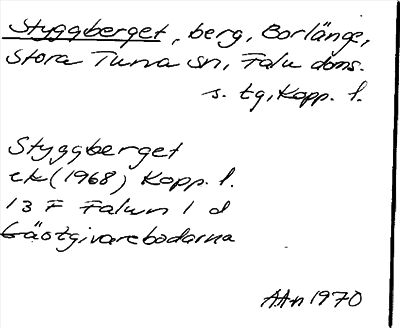 Styggberget, berg, Borlänge,
Stora Tuna sn, Falu doms.
s. tg, Kopp. l.
Styggberget
ek (1968) Kopp. l.
13 F Falun 1 d
Gästgivarebodarna
AAn 1970